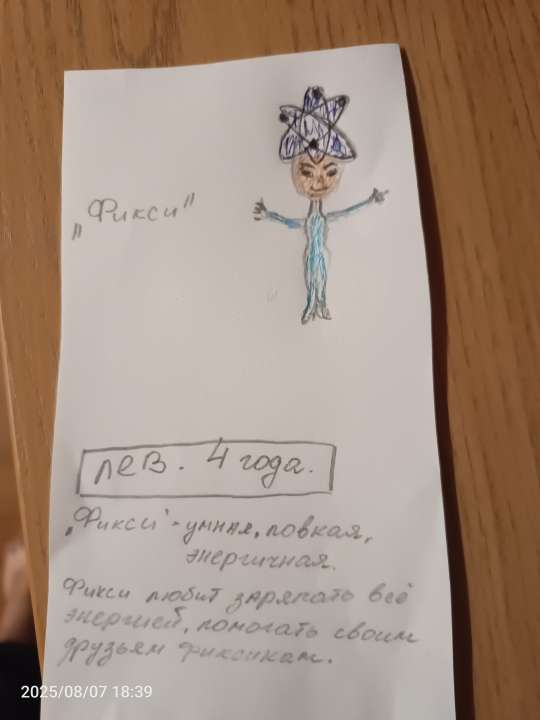 „Фикси"
лев. 4 года.
„Фикси" - умная, ловкая,
энергичная.
Фикси любит заряжать всё
энергией, помогать своим
друзьям фиксикам.
2025/08/07 18:39